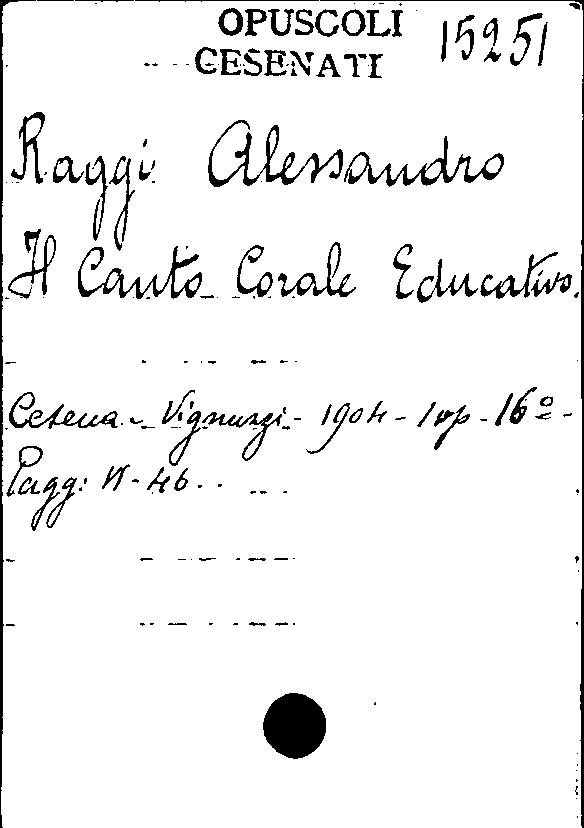 OPUSCOLI
CESENATI
15251
Raggi Alessandro
Il Canto Corale Educativo.
Cesena - Vignuzzi - 1904 - 1 op - 16º -
Pagg: VI - 46.